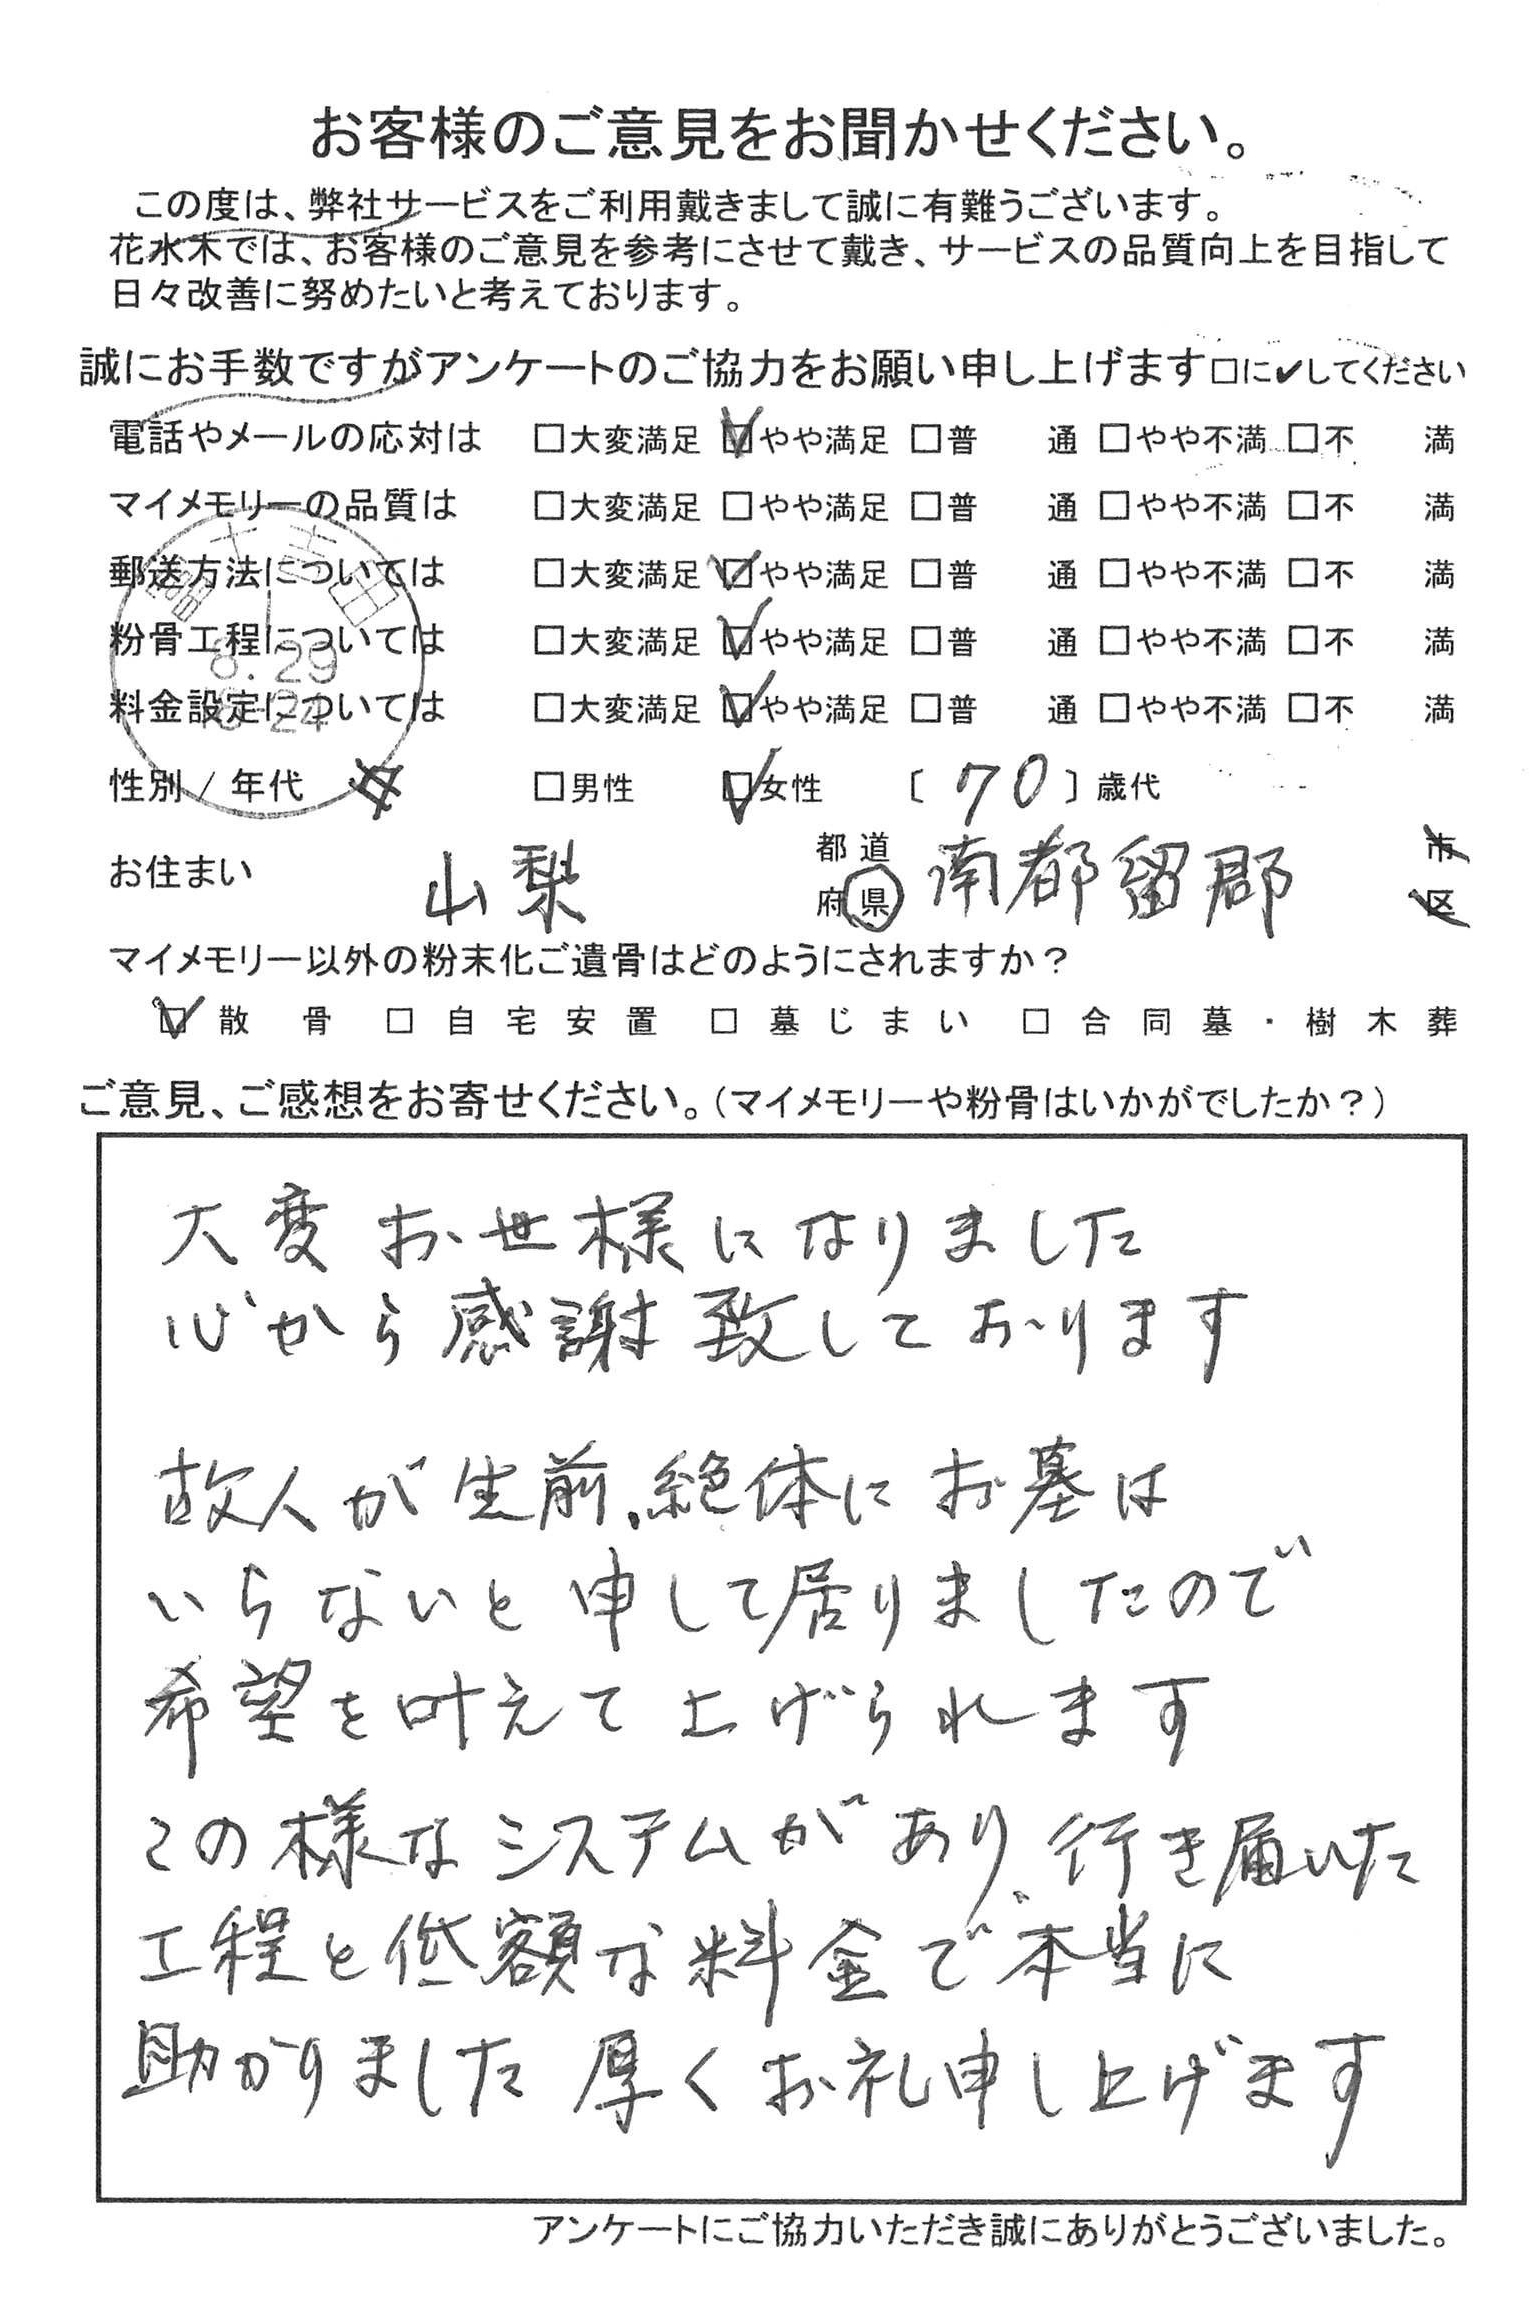 お客様のご意見をお聞かせください。
この度は、弊社サービスをご利用戴きまして誠に有難うございます。
花水木では、お客様のご意見を参考にさせて戴き、サービスの品質向上を目指して
日々改善に努めたいと考えております。
誠にお手数ですがアンケートのご協力をお願い申し上げます□に✔してください
電話やメールの応対は □大変満足 ☑やや満足 □普 通 □やや不満 □不 満
マイメモリーの品質は □大変満足 □やや満足 □普 通 □やや不満 □不 満
郵送方法については □大変満足 ☑やや満足 □普 通 □やや不満 □不 満
粉骨工程については □大変満足 ☑やや満足 □普 通 □やや不満 □不 満
料金設定については □大変満足 ☑やや満足 □普 通 □やや不満 □不 満
富士吉田
8.29
18-24
性別/年代 □男性 ☑女性 〔70〕歳代
お住まい 山梨 都道府県 南都留郡 市区
マイメモリー以外の粉末化ご遺骨はどのようにされますか？
☑散骨 □自宅安置 □墓じまい □合同墓・樹木葬
ご意見、ご感想をお寄せください。（マイメモリーや粉骨はいかがでしたか？）
大変お世様になりました
心から感謝致しております
故人が生前、絶体にお墓は
いらないと申して居りましたので
希望を叶えて上げられます
この様なシステムがあり、行き届いた
工程と低額な料金で本当に
助かりました 厚くお礼申し上げます
アンケートにご協力いただき誠にありがとうございました。